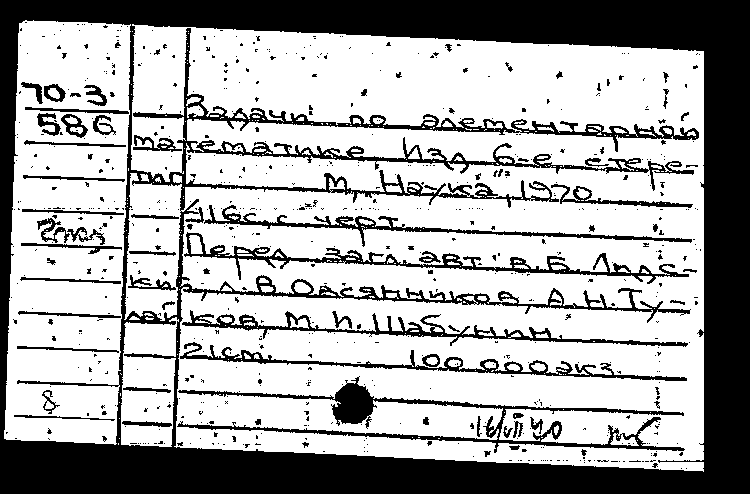 70-3.
586
Задачи по элементарной
математике. Изд 6-е, стере-
тип. М, "Наука", 1970.
416с, с черт.
Перед загл. авт: В.Б. Лидс-
кий, Л.В Овсянников, А.Н. Ту-
лайков, М.И. Шабунин.
21см. 100 000экз.
8
16/VII 70